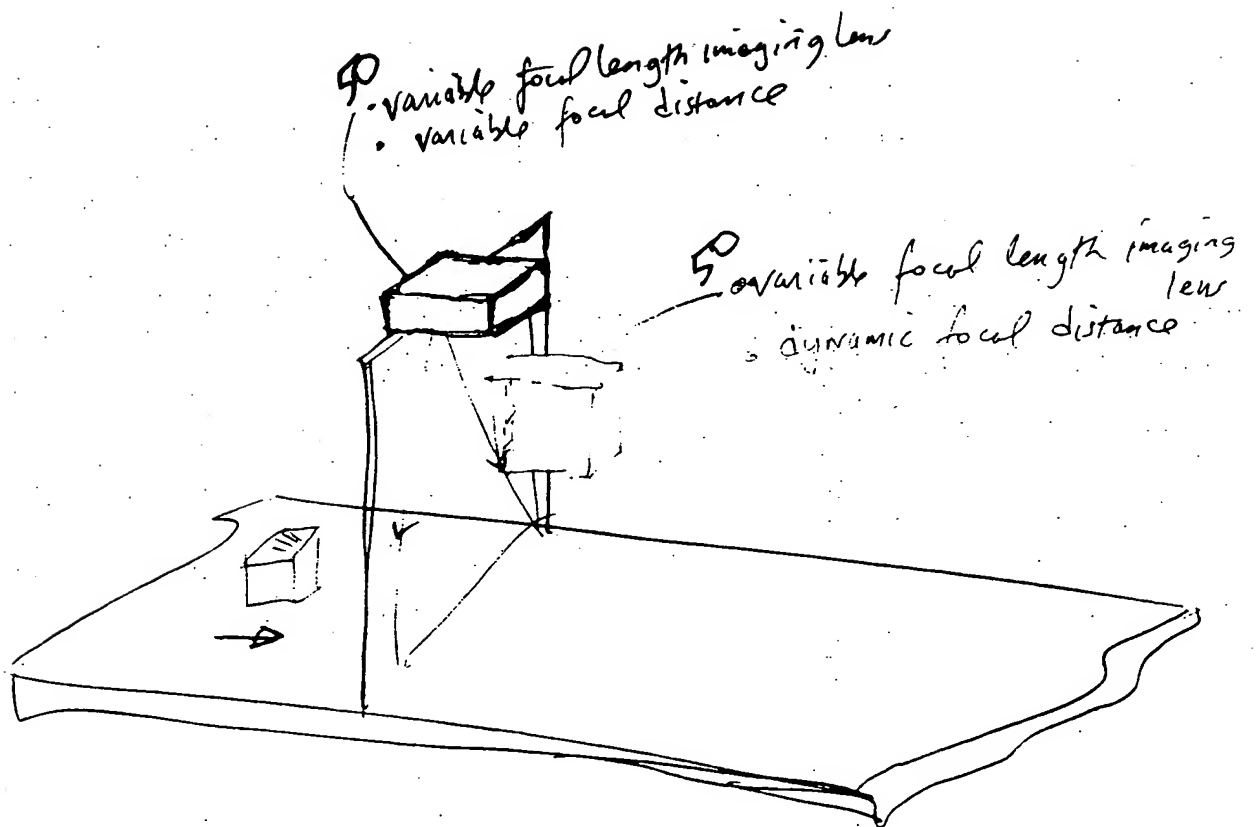 50
• variable focal length imaging lens
• variable focal distance
50
• variable focal length imaging
lens
• dynamic focal distance